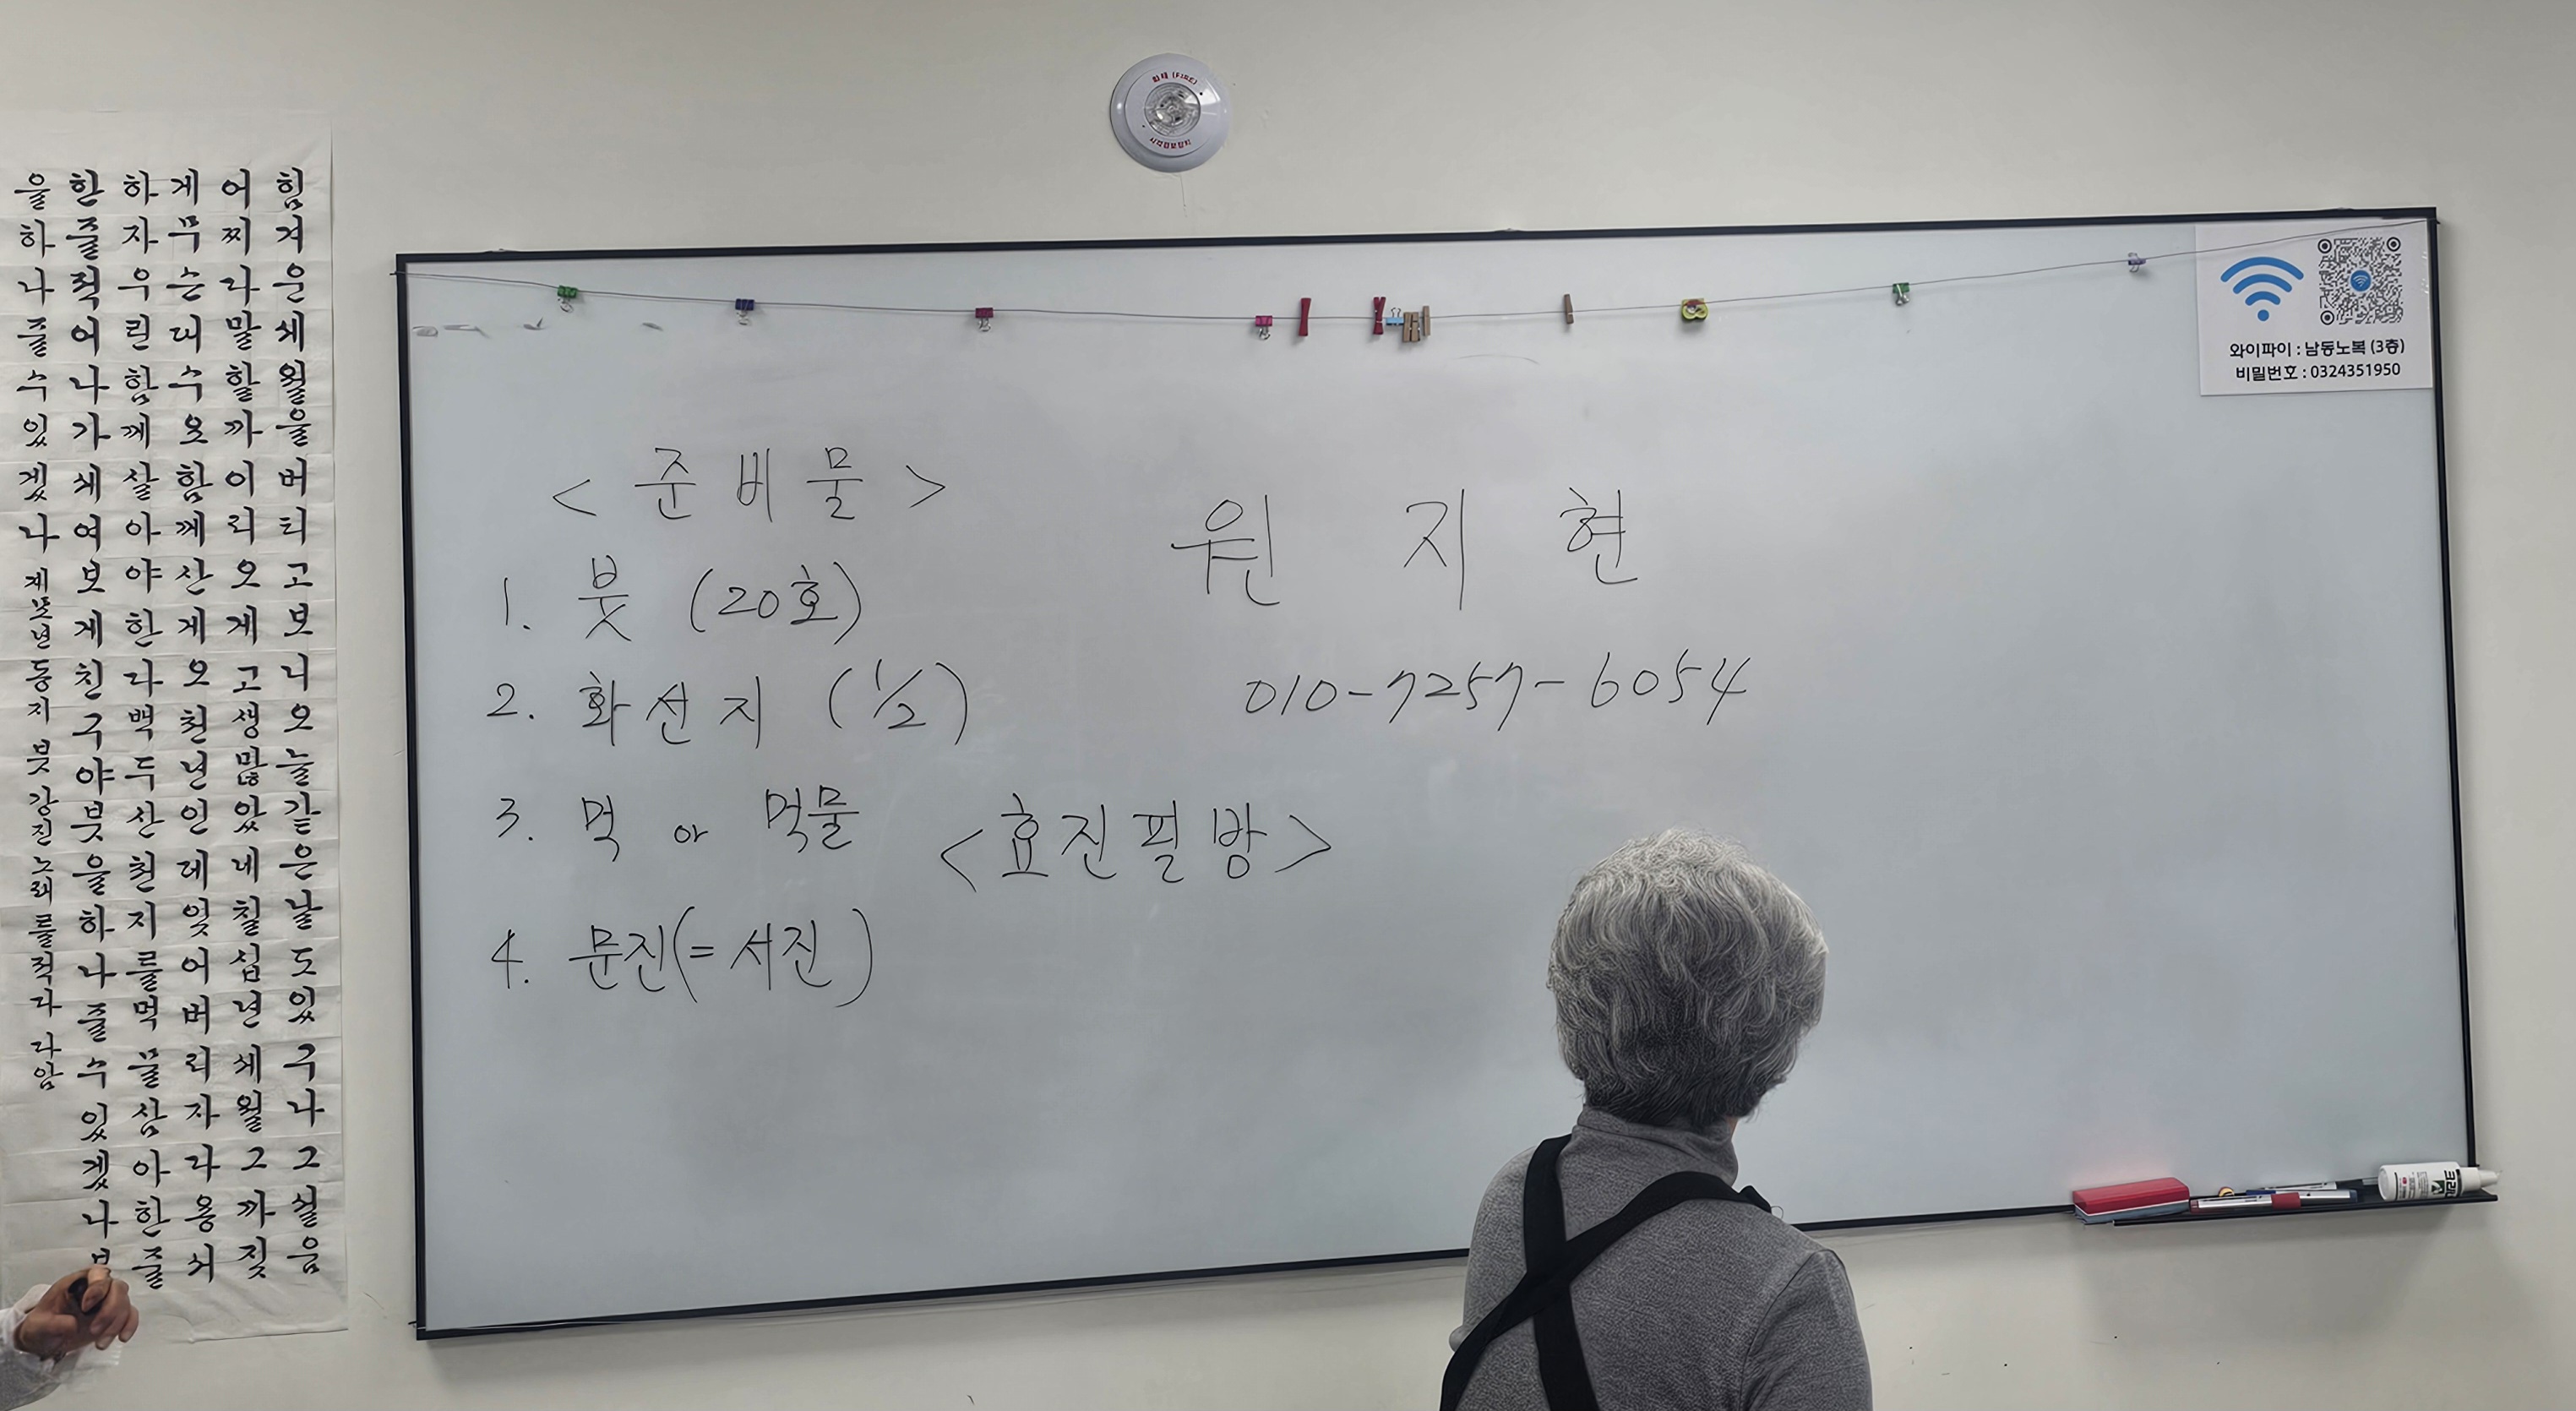 힘겨운세월을버티고보니오늘같은날도있구나그설움
어찌다말할까이리오게고생많았네칠십년세월그까짓
게무슨대수오함께산게오천년인데잊어버리자다용서
하자우린함께살아야한다백두산천지를먹물삼아한줄
한줄적어나가세여보게친구야붓을하나줄수있겠나
을하나줄수있겠나 계묘년 동지 붓 강진 노래를 적다 라암
화재 (FIRE)
시각경보장치
와이파이 : 남동노복 (3층)
비밀번호 : 0324351950
< 준비물 >
1. 붓 (20호)
2. 화선지 (1/2)
3. 먹 or 먹물 <효진필방>
4. 문진(= 서진)
원지현
010-7257-6054